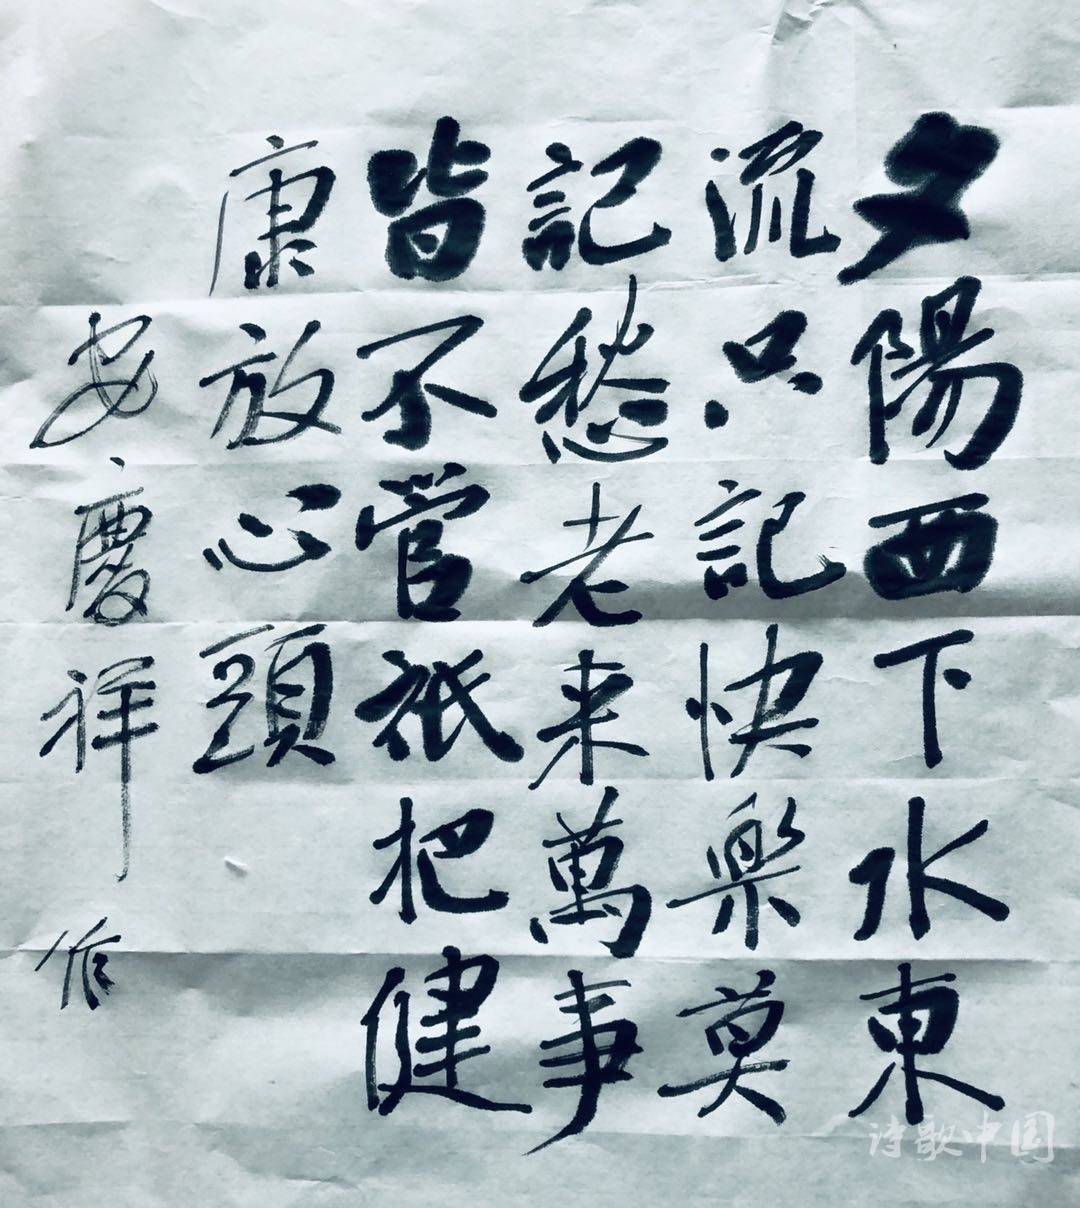 夕陽西下水東
流只記快樂莫
記愁老来萬事
皆不管祇把健
康放心頭
安慶祥作
诗歌中国